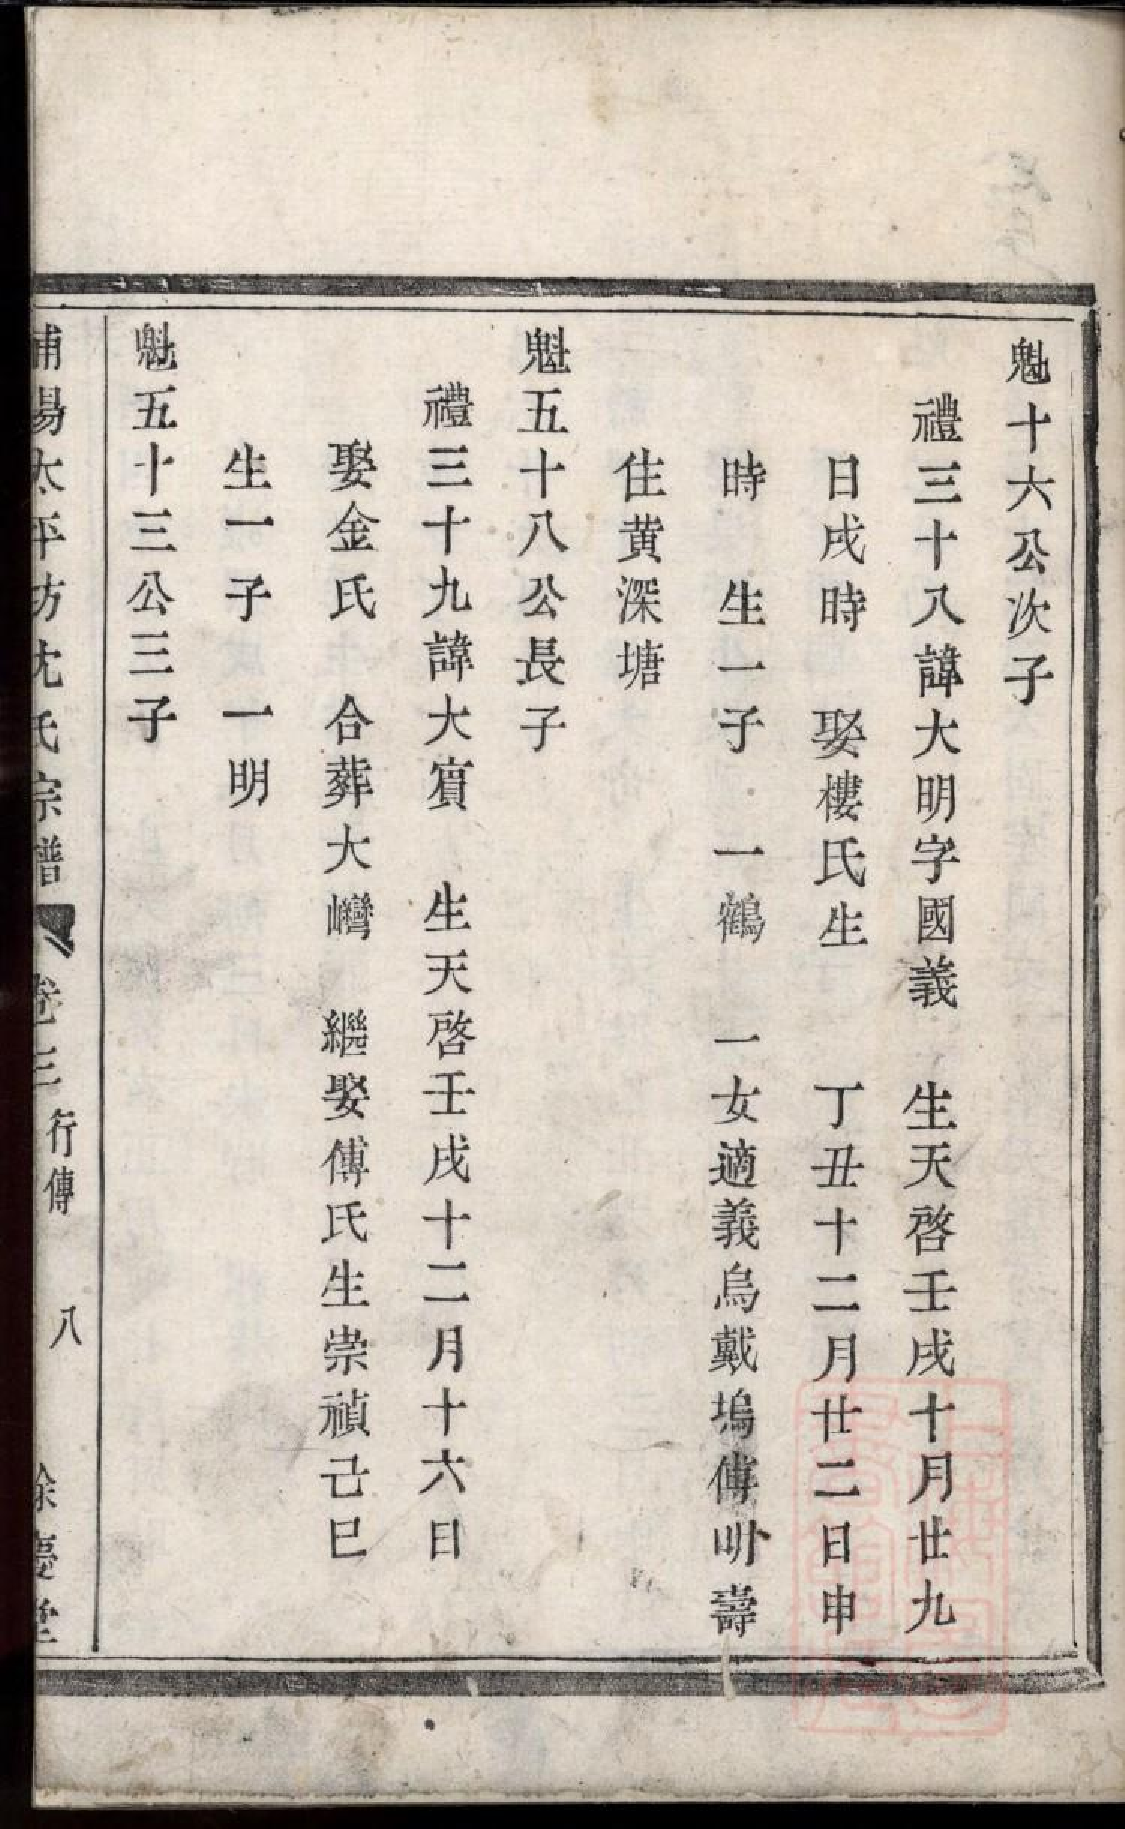 魁十六公次子
禮三十八諱大明字國義 生天啓壬戌十月廿九
日戌時 娶樓氏生 丁丑十二月廿二日申
時 生一子 一鶴 一女適義烏戴塢傅明壽
住黄深塘
魁五十八公長子
禮三十九諱大賔 生天啓壬戌十二月十六日
娶金氏 合葬大巒 繼娶傅氏生崇禎己巳
生一子 一明
魁五十三公三子
浦陽太平坊沈氏宗譜 卷三 行傳 八 餘慶堂